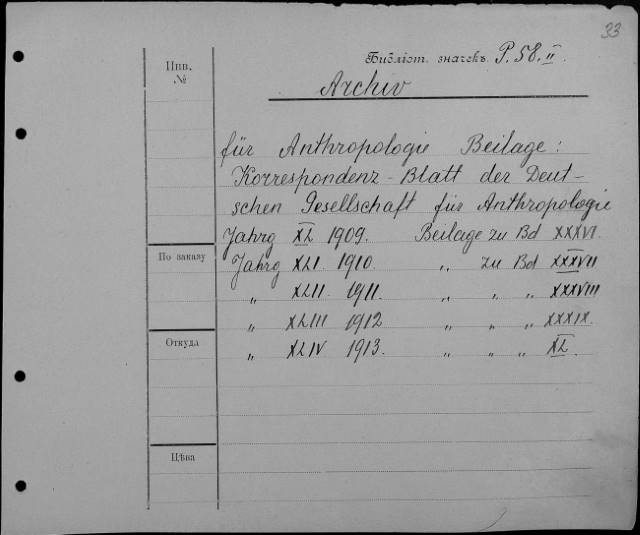 33
Инв.
№
Библіот. значекъ. P. 58. II.
Archiv
für Anthropologie Beilage:
Korrespondenz-Blatt der Deut-
schen Gesellschaft für Anthropologie
Jahrg XL 1909. Beilage zu Bd XXXVI.
По заказу
Jahrg XLI 1910. „ zu Bd XXXVII
„ XLII 1911. „ „ „ XXXVIII
„ XLIII 1912 „ „ „ XXXIX.
Откуда
„ XLIV 1913. „ „ „ XL.
Цѣна